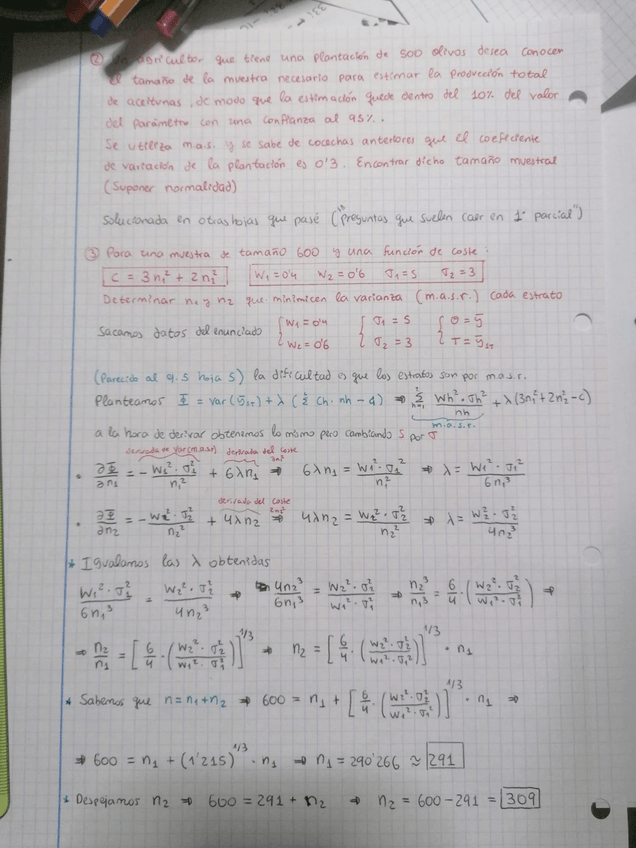 ② Un agricultor que tiene una plantación de 500 olivos desea conocer
el tamaño de la muestra necesario para estimar la producción total
de aceitunas, de modo que la estimación quede dentro del 10% del valor
del parámetro con una confianza al 95%.
Se utiliza m.a.s. y se sabe de cosechas anteriores que el coeficiente
de variación de la plantación es 0'3. Encontrar dicho tamaño muestral
(Suponer normalidad)
Solucionada en otras hojas que pasé ("preguntas que suelen caer en 1º parcial")
③ Para una muestra de tamaño 600 y una función de coste:
C = 3n₁² + 2n₁² W₁ = 0'4 W₂ = 0'6 σ₁ = 5 σ₂ = 3
Determinar n₁ y n₂ que minimicen la varianza (m.a.s.r.) cada estrato
Sacamos datos del enunciado { W₁ = 0'4 W₂ = 0'6 { σ₁ = 5 σ₂ = 3 { Θ = ȳ T = ȳst
(Parecido al q.5 hoja 5) la dificultad es que los estratos son por m.a.s.r.
Planteamos Φ = Var(ȳst) + λ(Σ ch·nh - C) ⇒ Σ Wh²·σh²/nh + λ(3n₁² + 2n₂² - C)
m.a.s.r.
a la hora de derivar obtenemos lo mismo pero cambiando S por σ
derivada de var(m.a.s.r) derivada del coste 3n₁²
• ∂Φ/∂n₁ = - W₁²·σ₁²/n₁² + 6λn₁ ⇒ 6λn₁ = W₁²·σ₁²/n₁² ⇒ λ = W₁²·σ₁²/6n₁³
derivada del coste 2n₂²
• ∂Φ/∂n₂ = - W₂²·σ₂²/n₂² + 4λn₂ ⇒ 4λn₂ = W₂²·σ₂²/n₂² ⇒ λ = W₂²·σ₂²/4n₂³
* Igualamos las λ obtenidas
W₁²·σ₁²/6n₁³ = W₂²·σ₂²/4n₂³ ⇒ 4n₂³/6n₁³ = W₂²·σ₂²/W₁²·σ₁² ⇒ n₂³/n₁³ = 6/4·(W₂²·σ₂²/W₁²·σ₁²) ⇒
⇒ n₂/n₁ = [6/4·(W₂²·σ₂²/W₁²·σ₁²)]^1/3 ⇒ n₂ = [6/4·(W₂²·σ₂²/W₁²·σ₁²)]^1/3 · n₁
* Sabemos que n = n₁ + n₂ ⇒ 600 = n₁ + [6/4·(W₂²·σ₂²/W₁²·σ₁²)]^1/3 · n₁ ⇒
⇒ 600 = n₁ + (1'215)^1/3 · n₁ ⇒ n₁ = 290'266 ≈ 291
* Despejamos n₂ ⇒ 600 = 291 + n₂ ⇒ n₂ = 600 - 291 = 309